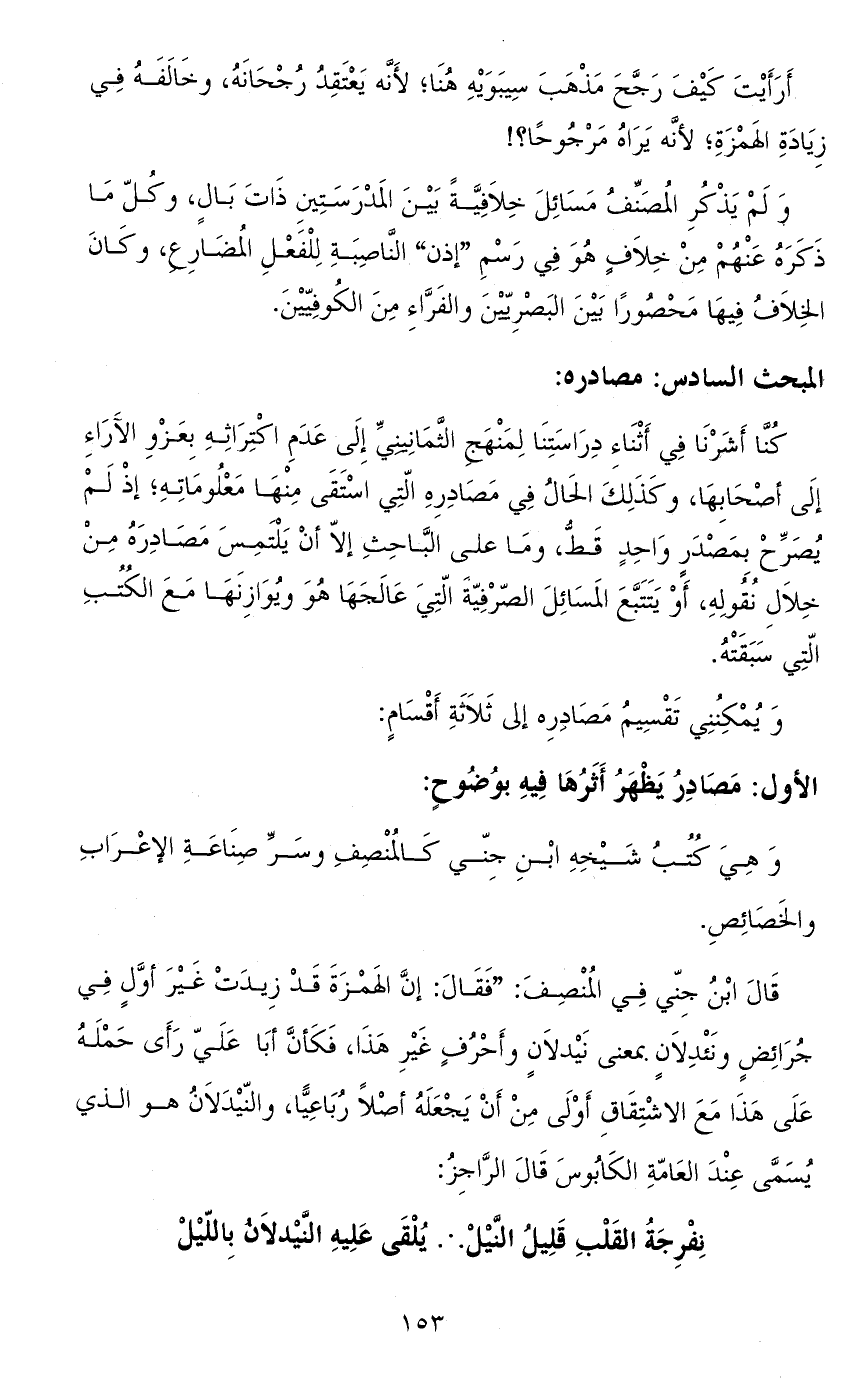 أَرَأَيْتَ كَيْفَ رَجَّحَ مَذْهَبَ سِيبَوَيْهِ هُنَا؛ لأَنَّه يَعْتَقِدُ رُجْحَانَهُ، وخَالَفَهُ فِي
زِيَادَةِ الهَمْزَةِ؛ لأَنَّه يَرَاهُ مَرْجُوحًا؟!
وَ لَمْ يَذْكُرِ المُصَنِّفُ مَسَائِلَ خِلاَفِيَّةً بَيْنَ المَدْرَسَتِينِ ذَاتَ بَالٍ، وكُلّ مَا
ذَكَرَهُ عَنْهُمْ مِنْ خِلاَفٍ هُوَ فِي رَسْمِ ”إذن“ النَّاصِبَةِ لِلْفَعْلِ المُضَارِعِ، وكَانَ
الخِلاَفُ فِيهَا مَحْصُورًا بَيْنَ البَصْرِيّيْنَ والفَرَّاءِ مِنَ الكُوفِيّيْنَ.
المبحث السادس: مصادره:
كُنَّا أَشَرْنَا فِي أَثْنَاءِ دِرَاسَتِنَا لِمَنْهَجِ الثَّمَانِينِيِّ إِلَى عَدَمِ اكْتِرَاثِهِ بِعَزْوِ الآرَاءِ
إِلَى أَصْحَابِهَا، وكَذَلِكَ الحَالُ فِي مَصَادِرِهِ الّتِي اسْتَقَى مِنْهَا مَعْلُومَاتِهِ؛ إذْ لَمْ
يُصَرِّحْ بِمَصْدَرٍ وَاحِدٍ قَطُّ، ومَا على البَّاحِثِ إلاّ أنْ يَلْتَمِسَ مَصَادِرَهُ مِنْ
خِلاَلِ نُقُولِهِ، أَوْ يَتَتَبَّعَ المَسَائِلَ الصّرْفِيّةَ الّتِيَ عَالَجَهَا هُوَ ويُوَازِنَهَا مَعَ الكُتُبِ
الّتِي سَبَقَتْهُ.
وَ يُمْكِنُنِي تَقْسِيمُ مَصَادِرِه إلى ثَلاَثَةِ أَقْسَامٍ:
الأول: مَصَادِرُ يَظْهَرُ أَثَرُهَا فِيهِ بوُضُوحٍ:
وَ هِيَ كُتُبُ شَيْخِهِ ابْنِ جِنّي كَالمُنْصِفِ وسَرِّ صِنَاعَةِ الإعْرَابِ
والخَصَائِصِ.
قَالَ ابْنُ جِنّي فِي المُنْصِفَ: ”فَقَالَ: إنَّ الهَمْزَةَ قَدْ زِيدَتْ غَيْرَ أوَّلٍ فِي
جُرَائِضٍ ونَئْدِلاَنٍ بمعنى نَيْدلاَنٍ وأَحْرُفٍ غَيْرِ هَذَا، فَكَأنَّ أبَا عَلَيّ رَأى حَمْلَهُ
عَلَى هَذَا مَعَ الاشْتِقَاقِ أَوْلَى مِنْ أَنْ يَجْعَلَهُ أصْلاً رُبَاعِيًّا، والنّيْدَلاَنُ هو الذي
يُسَمَّى عِنْدَ العَامّةِ الكَابُوسَ قَالَ الرَّاجِزُ:
نِفْرِجَةُ القَلْبِ قَلِيلُ النَّيْلْ.·. يُلْقَى عَلِيهِ النَّيْدلاَنُ بِاللّيْلْ
١٥٣